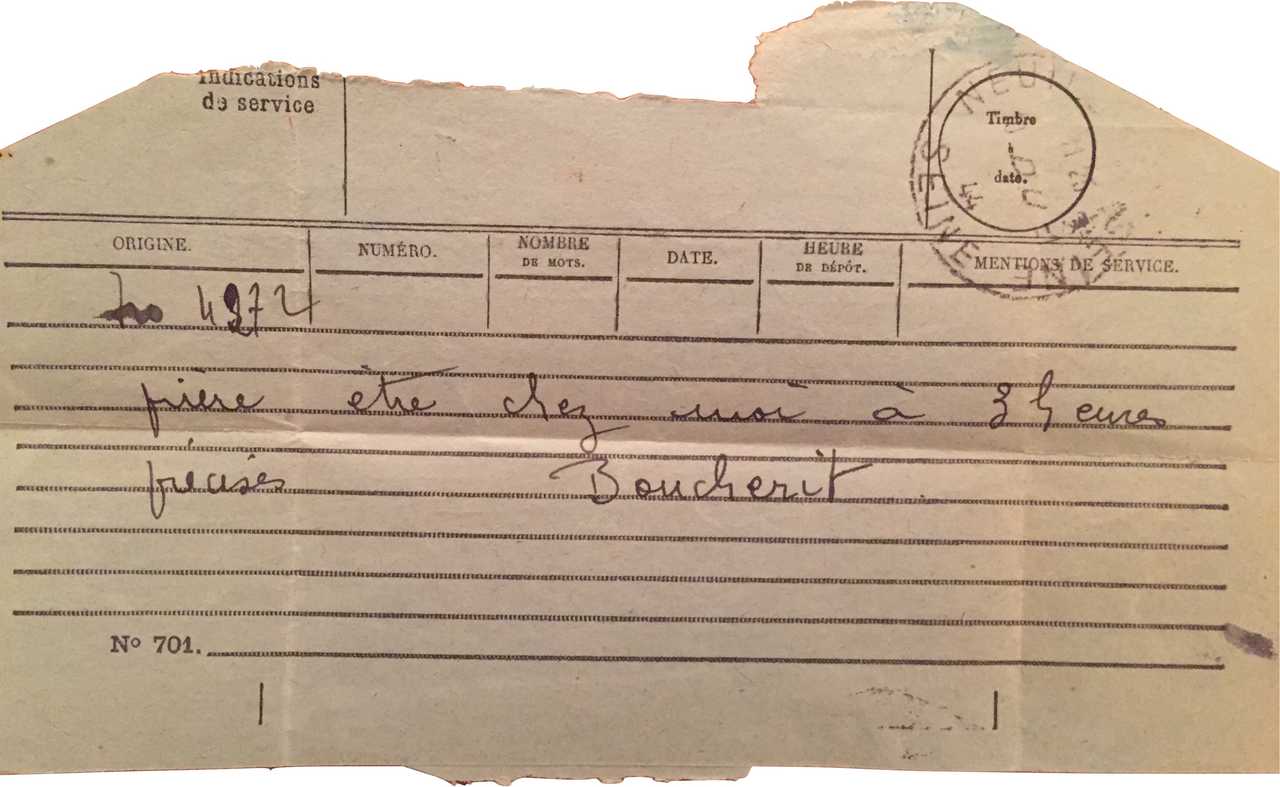 Indications
de service
Timbre
à
date.
NEUI
SEINE
ORIGINE.
NUMÉRO.
NOMBRE
DE MOTS.
DATE.
HEURE
DE DÉPÔT.
MENTIONS DE SERVICE.
4972
prière être chez moi à 3 heures
précises Boucherit
Nº 701.